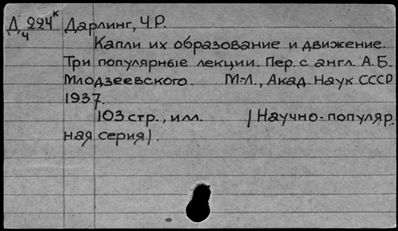 Д 224к Дарлинг, Ч.Р.
ч
Капли их образование и движение.
Три популярные лекции. Пер. с англ. А.Б.
Млодзеевского. М-Л., Акад. Наук СССР
1937.
103 стр., илл. /Научно-популяр
ная серия/.